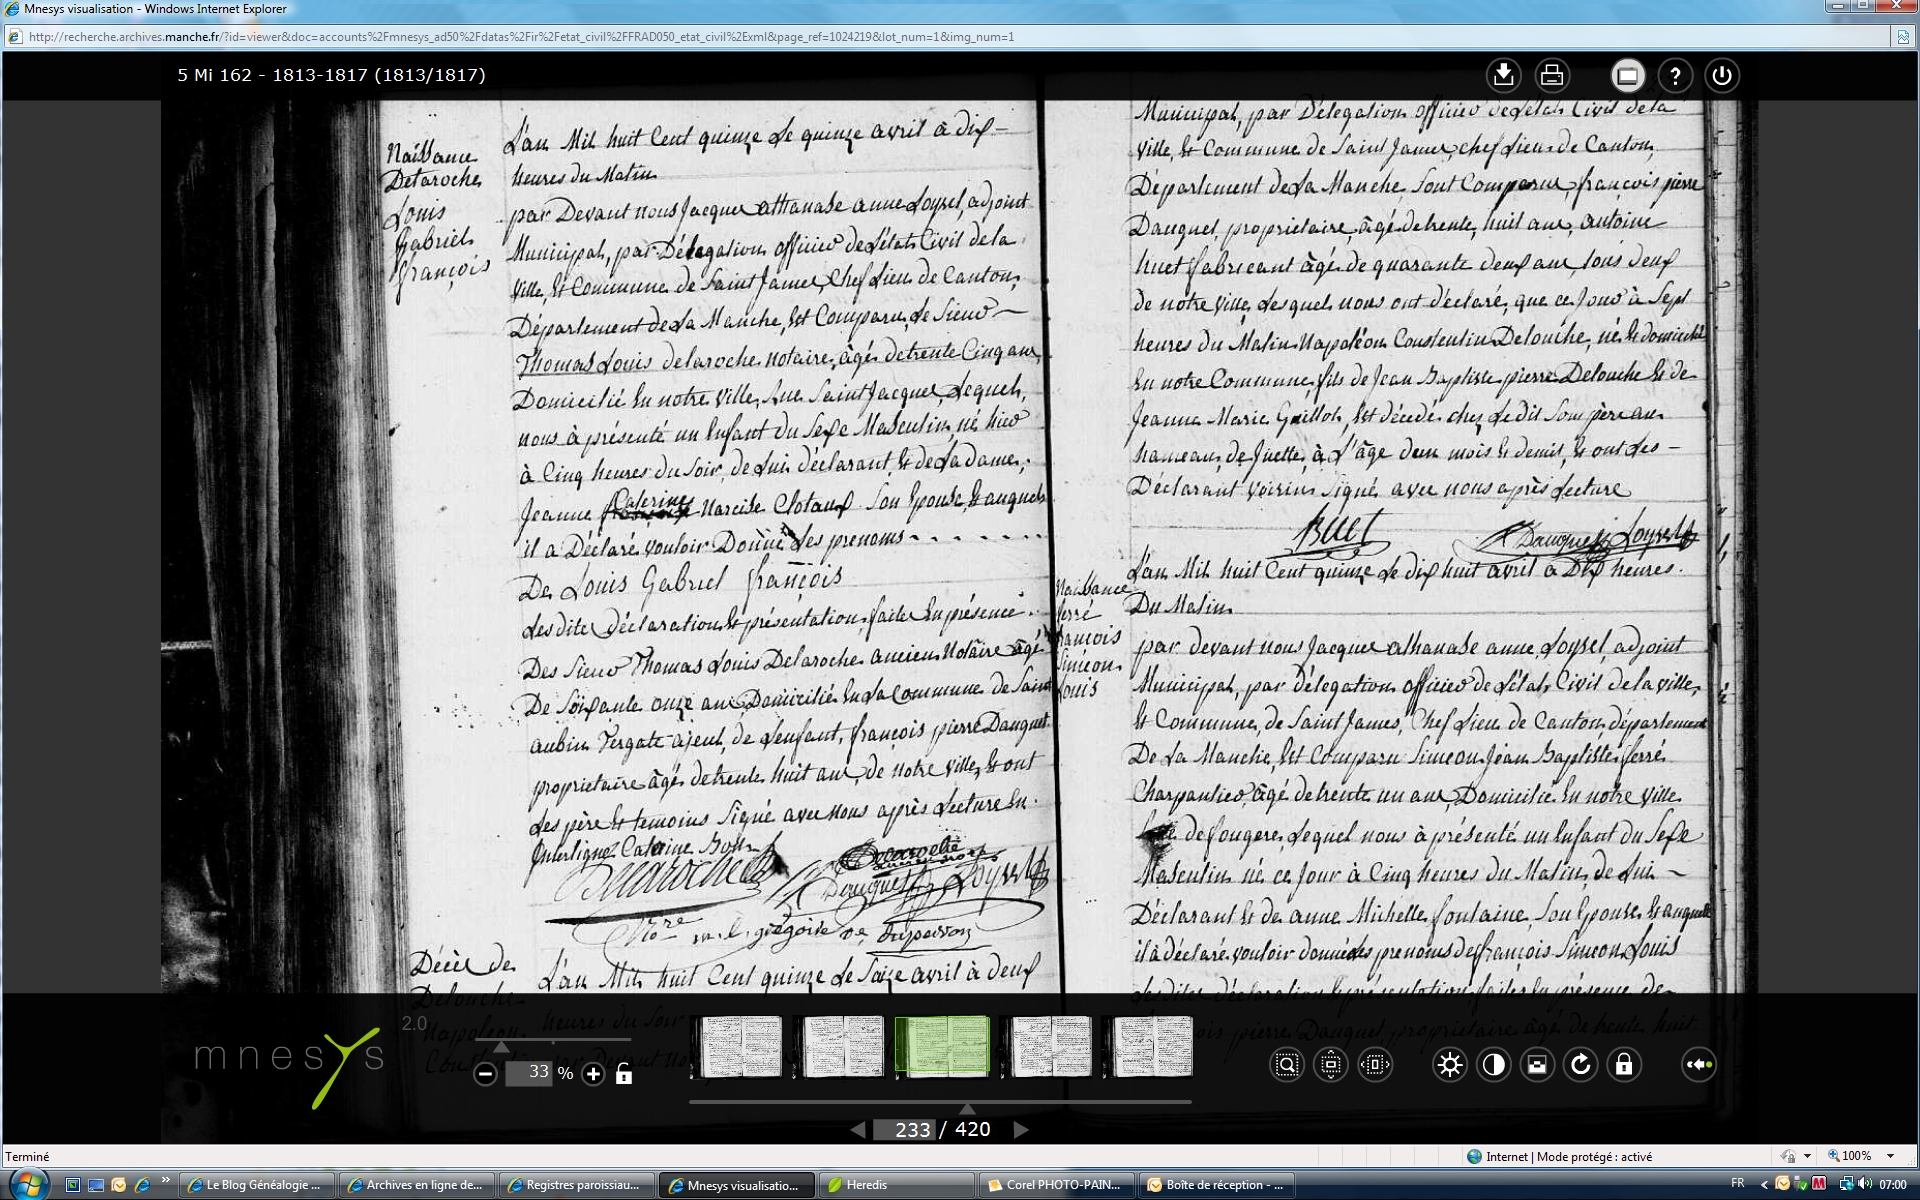 Mnesys visualisation - Windows Internet Explorer
http://recherche.archives.manche.fr/?id=viewer&doc=accounts%2Fmnesys_ad50%2Fdatas%2Fir%2Fetat_civil%2FFRAD050_etat_civil%2Exml&page_ref=1024219&lot_num=1&img_num=1
5 Mi 162 - 1813-1817 (1813/1817)
Naissance
Delaroche
Louis
Gabriel
françois
L'an Mil huit Cent quinze Le quinze avril à dix
heures du Matin
par Devant nous Jacque athanase anne Loysel, adjoint
Municipal, par Délegation officier de L'état Civil de la
Ville, Et Commune de Saint James, Chef Lieu de Canton,
Département de La Manche, Est Comparu, Le Sieur
Thomas Louis delaroche notaire, âgé de trente Cinq ans,
Domicilié En notre ville, Rue Saint Jacque, Lequel,
nous à présenté un Enfant du Sexe Masculin, né hier
à Cinq heures du Soir, de Lui déclarant, Et de La dame,
Jeanne Caterine Narcise Clotaux Son Epouse, Et auquel
il a Déclaré vouloir Donné Les prenoms
De Louis Gabriel françois
Les dites déclaration Et présentation, faite En présence
Des Sieur Thomas Louis Delaroche ancien Notaire âgé
De Soixante onze ans Domicilié En La Commune de Saint
aubin Tergate ajeul, de L'enfant, françois pierre Dauguet
proprietaire âgé de trente huit ans, de notre ville, Et ont
Les père Et temoins Signé avec nous après Lecture En
Interligne Caterine
Delaroche
Delaroche
Dauguet Loysel
Décès de
Delouche
Napoleon
L'an Mil huit Cent quinze Le Saize avril à deux
heures du Soir
Municipal, par Délegation officier de L'état Civil de la
ville, Et Commune de Saint James, chef Lieu de Canton,
Département de La Manche, Sont Comparus, françois pierre
Dauguet, proprietaire, âgé de trente, huit ans, antoine
huet fabricant âgé de quarante deux ans, tous deux
de notre ville, Lesquel nous ont déclaré, que ce Jour à Sept
heures du Matin Napoléon Constentin Delouche, né Et domicilié
En notre Commune, fils de Jean Baptiste pierre Delouche Et de
Jeanne Marie Guillot, Est décédé chez Le dit Son père au
hameau, de Juette, à L'âge deux mois Et demit, Et ont Les
Déclarant voisins Signé avec nous après Lecture
huet
Dauguet Loysel
Naissance
ferré
francois
Simeon
Louis
L'an Mil huit Cent quinze Le dix huit avril à Dix heures
Du Matin
par devant nous Jacque athanase anne Loysel, adjoint
Municipal, par Délegation officier de L'état, Civil de la ville,
Et Commune, de Saint James, Chef Lieu de Canton, département
De La Manche, Est Comparu Simeon Jean Baptiste ferré
Charpentier, âgé de trente un ans, Domicilié En notre ville
de fougere, Lequel nous à présenté un Enfant du Sexe
Masculin né ce Jour à Cinq heures du Matin, de Lui
Déclarant Et de anne Michelle fontaine, Son Epouse Et auquel
il à déclaré vouloir donné Les prenoms de françois Simeon Louis
Les dites déclaration Et présentation, faites En présence de
françois pierre Dauguet, proprietaire, âgé de trente huit
mnesys 2.0
33 %
233 / 420
Terminé
Internet | Mode protégé : activé
100%
Le Blog Généalogie ...
Archives en ligne de...
Registres paroissiau...
Mnesys visualisatio...
Heredis
Corel PHOTO-PAIN...
Boîte de réception - ...
FR
07:00